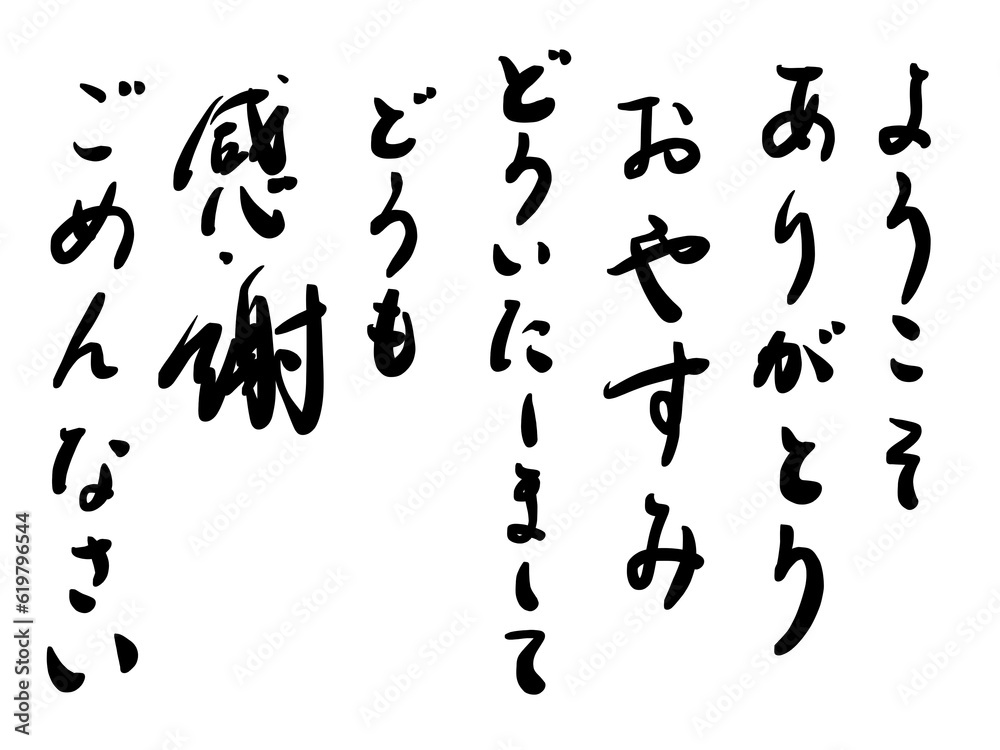 ようこそ
ありがとう
おやすみ
どういたしまして
どうも
感謝
ごめんなさい
Adobe Stock | #619796544
Adobe Stock